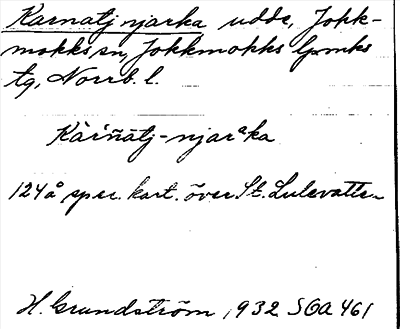 Karnatj njarka udde, Jokk-
mokks sn, Jokkmokks lpmks
tg, Norrb. l.
Kàrńàtj-njarᵃka
124å spec. kart. över St. Lulevatten
H. Grundström 1932 SOA 461